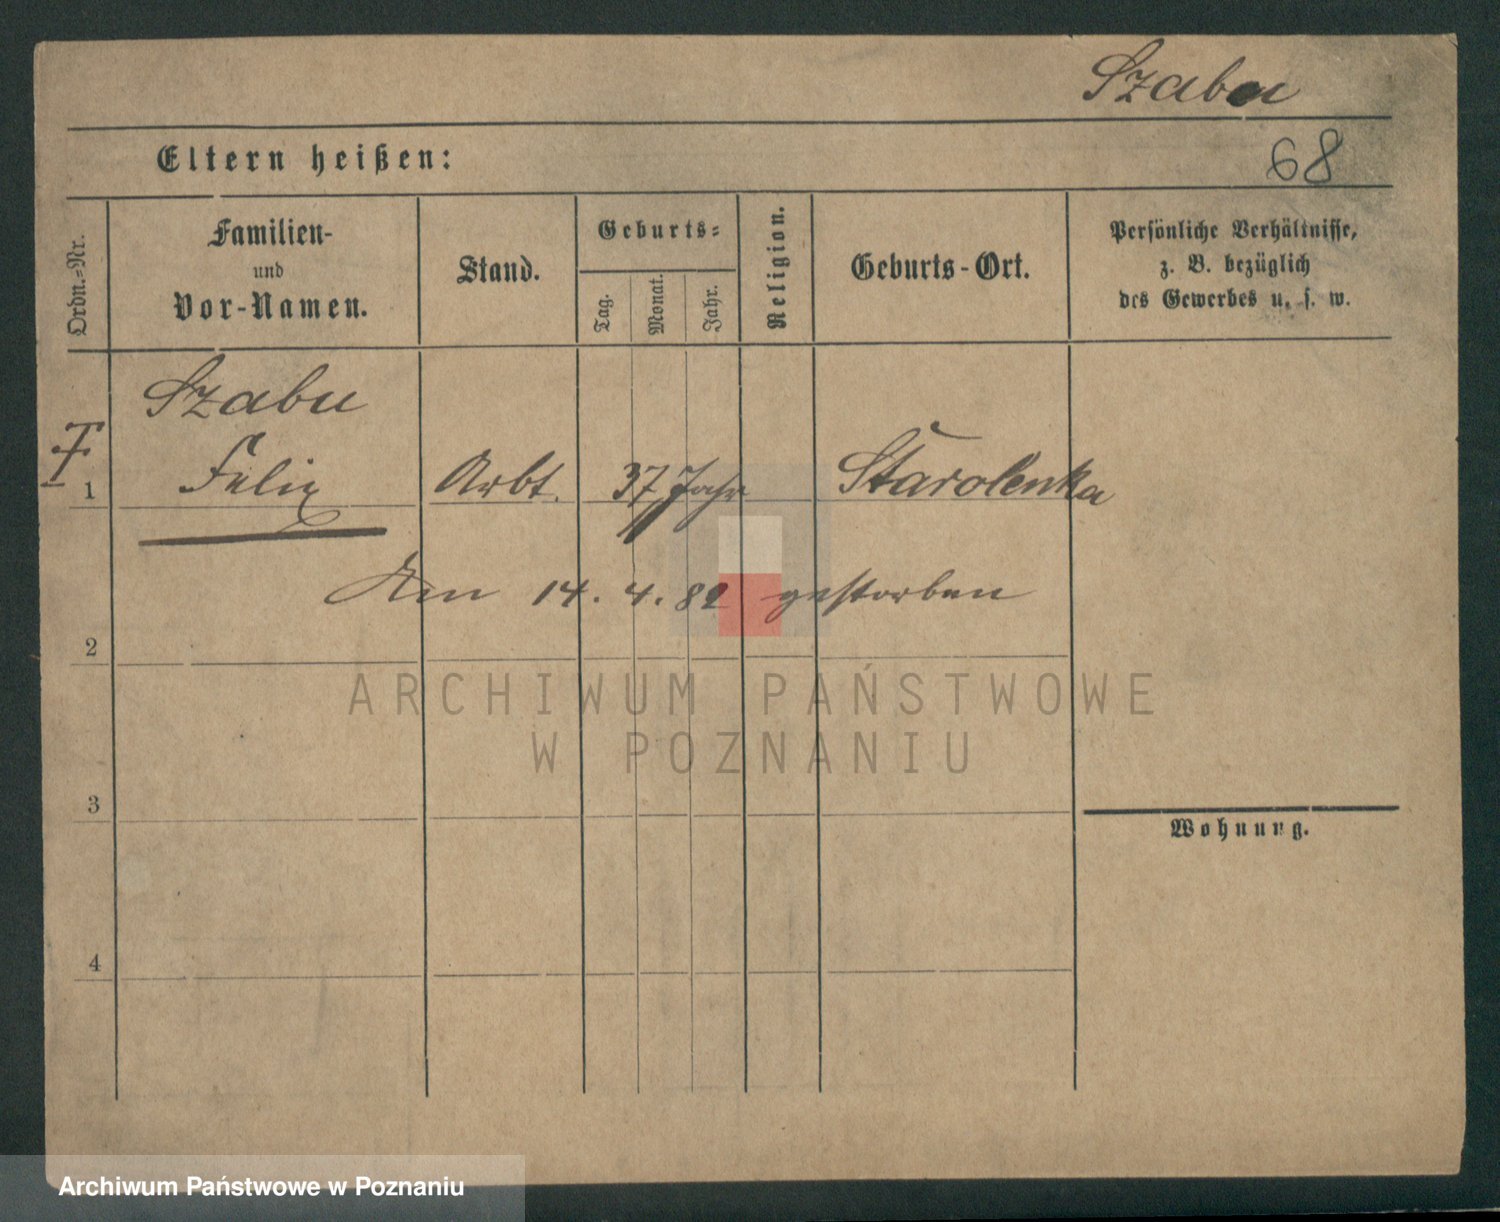 Szabu
68
Eltern heißen:
Ordn.=Nr.
Familien-
und
Vor-Namen.
Stand.
Geburts=
Tag.
Monat.
Jahr.
Religion.
Geburts-Ort.
Persönliche Verhältnisse,
z. B. bezüglich
des Gewerbes u. s. w.
Szabu
1 Felix Arbt. 37 Jahr Starolenka
Am 14. 4. 82 gestorben
2
ARCHIWUM PAŃSTWOWE
W POZNANIU
3
Wohnung.
4
Archiwum Państwowe w Poznaniu